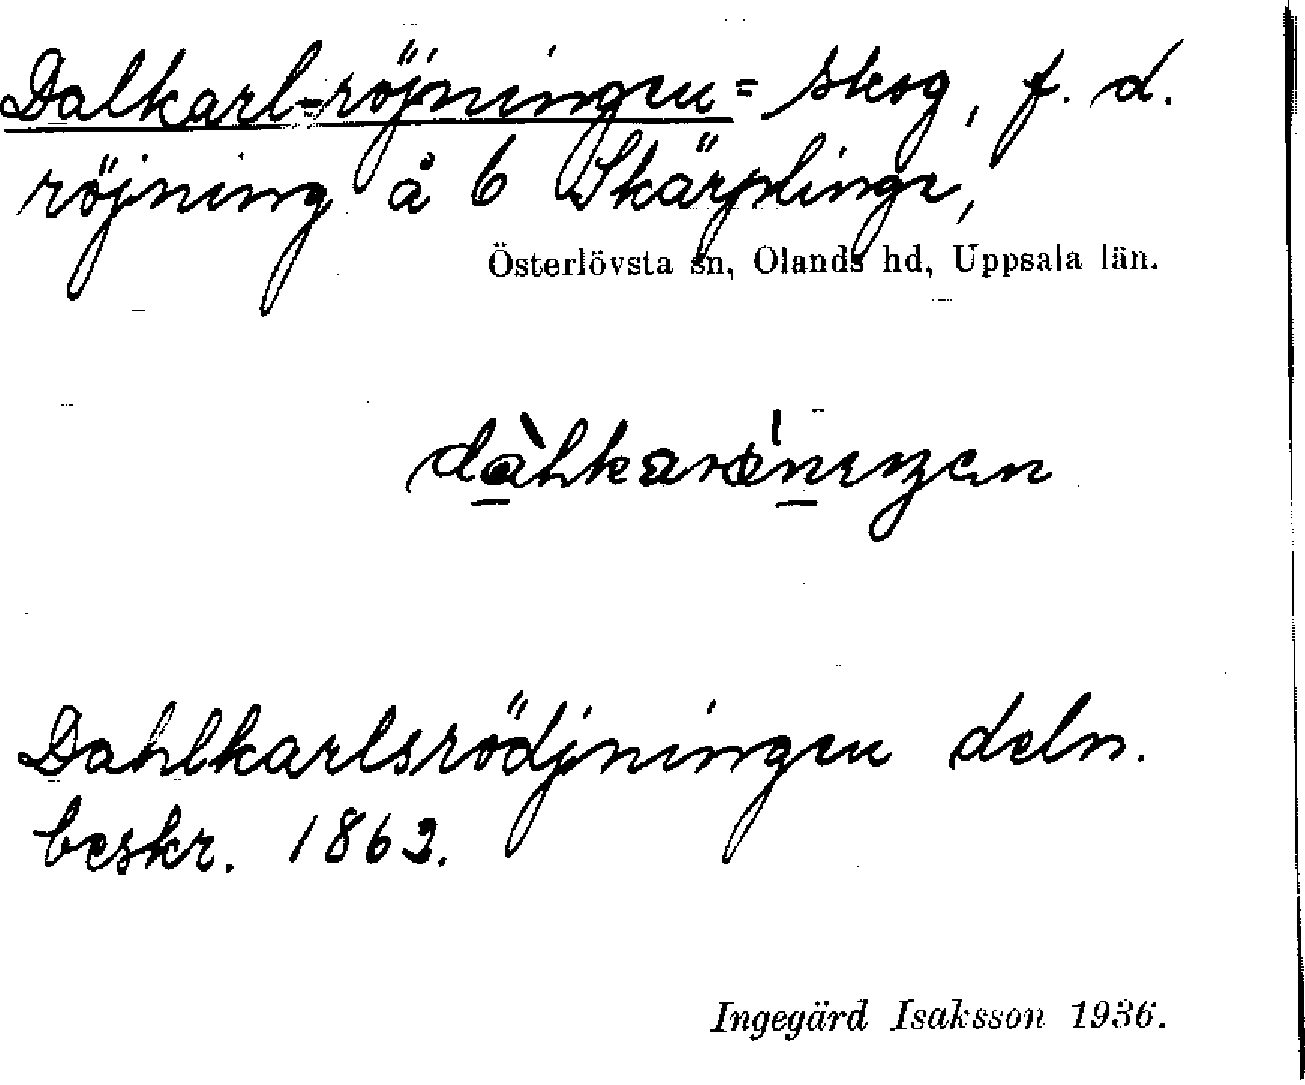 Dalkarl-röjningen = skog, f. d.
röjning å 6 Skärplinge,
Österlövsta sn, Olands hd, Uppsala län.
Dahlkarlsrödjningen deln.
beskr. 1862.
Ingegärd Isaksson 1936.